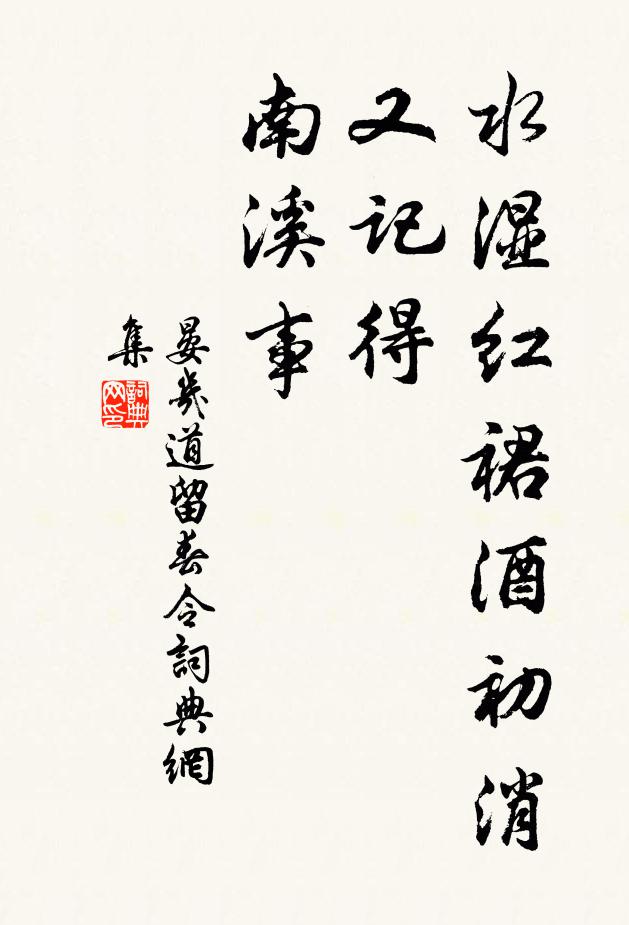 水湿红裙酒初消
又记得
南溪事
晏幾道留春令詞典網
集
詞典
网印